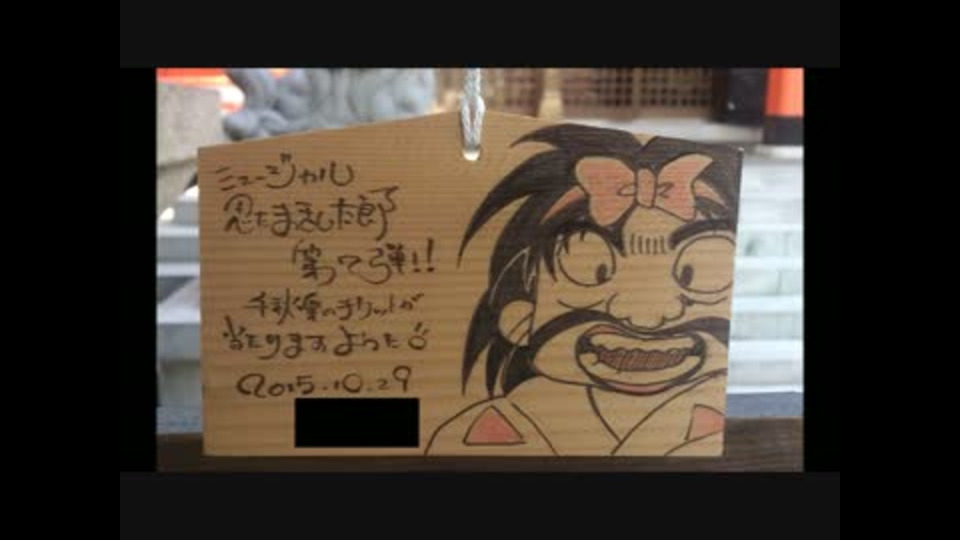 ミュージカル
忍たま乱太郎
第7弾!!
千秋楽のチケットが
当たりますように
2015.10.29